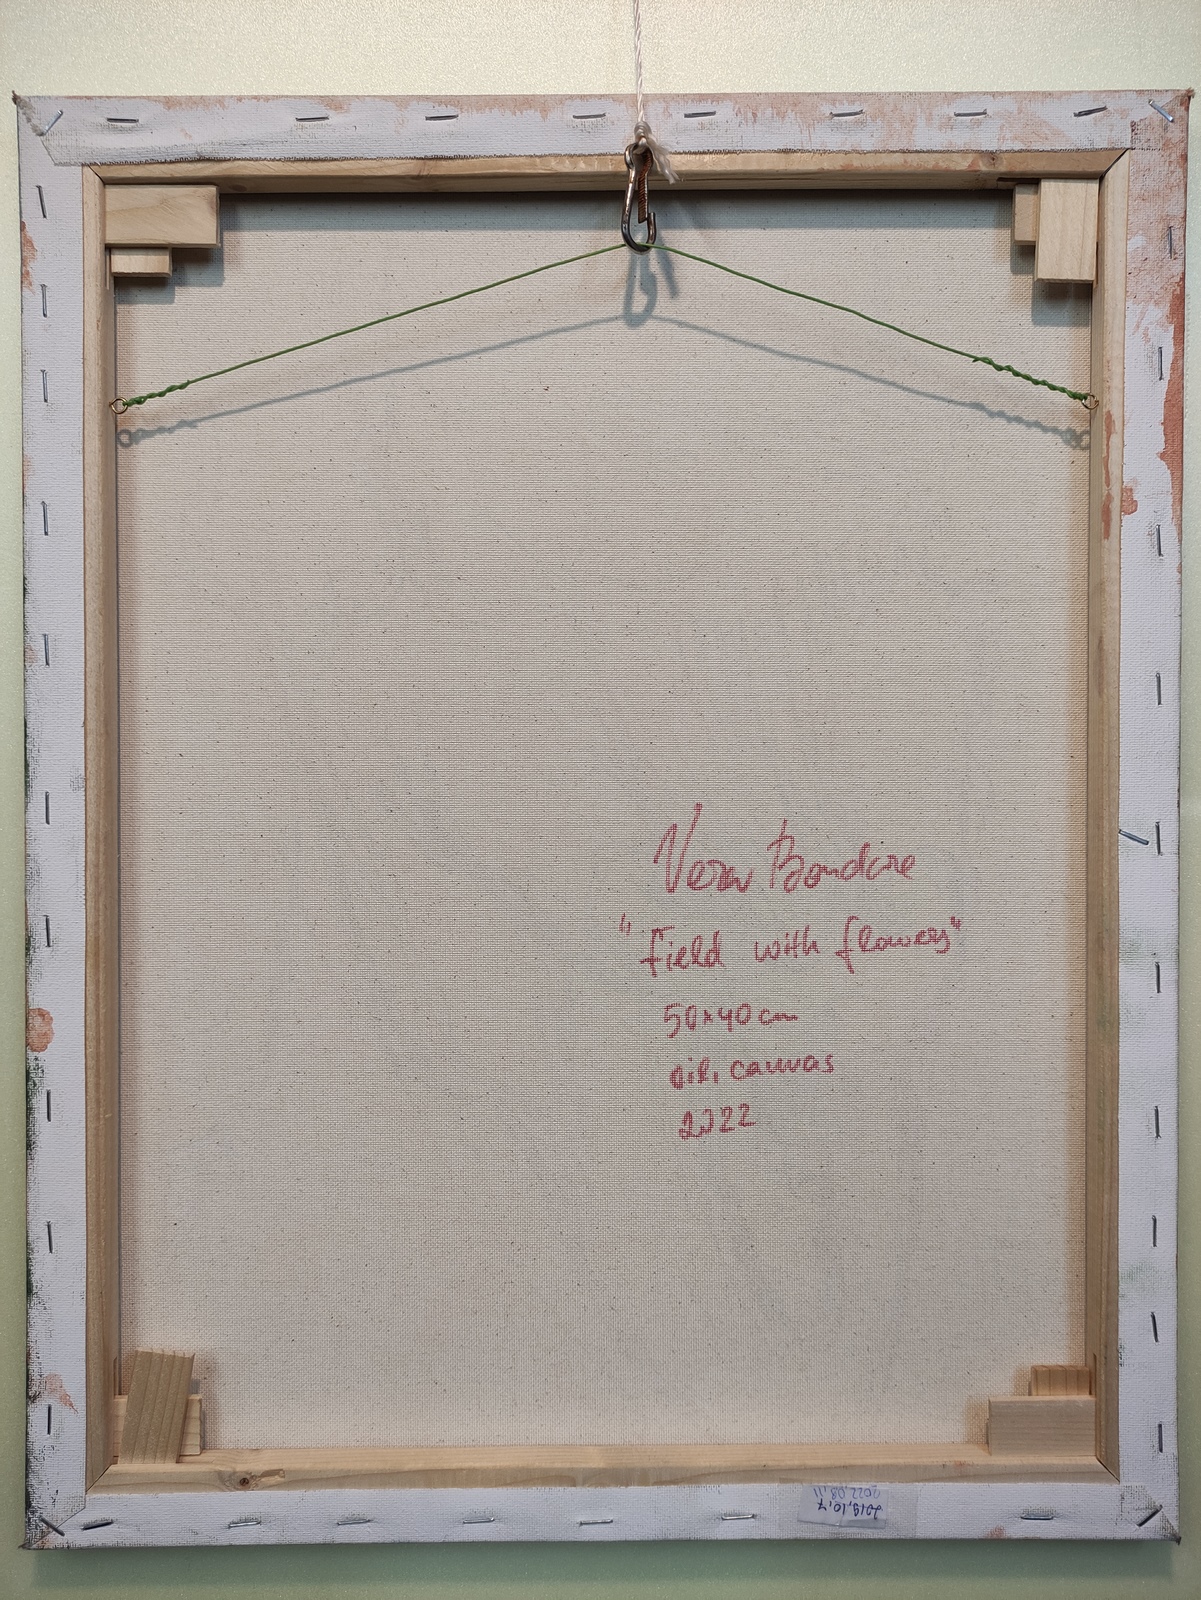 Vera Bondare
"Field with flowers"
50x40 cm
oil, canvas
2022
2019.10.7
2022.08.11